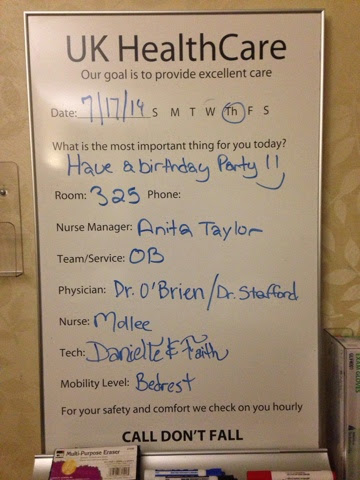 UK HealthCare
Our goal is to provide excellent care
Date: 7/17/14 S M T W Th F S
What is the most important thing for you today?
Have a birthday Party !!
Room: 325 Phone:
Nurse Manager: Anita Taylor
Team/Service: OB
Physician: Dr. O'Brien/Dr. Stafford
Nurse: Mollee
Tech: Danielle & Faith
Mobility Level: Bedrest
For your safety and comfort we check on you hourly
CALL DON'T FALL
Multi-Purpose Eraser